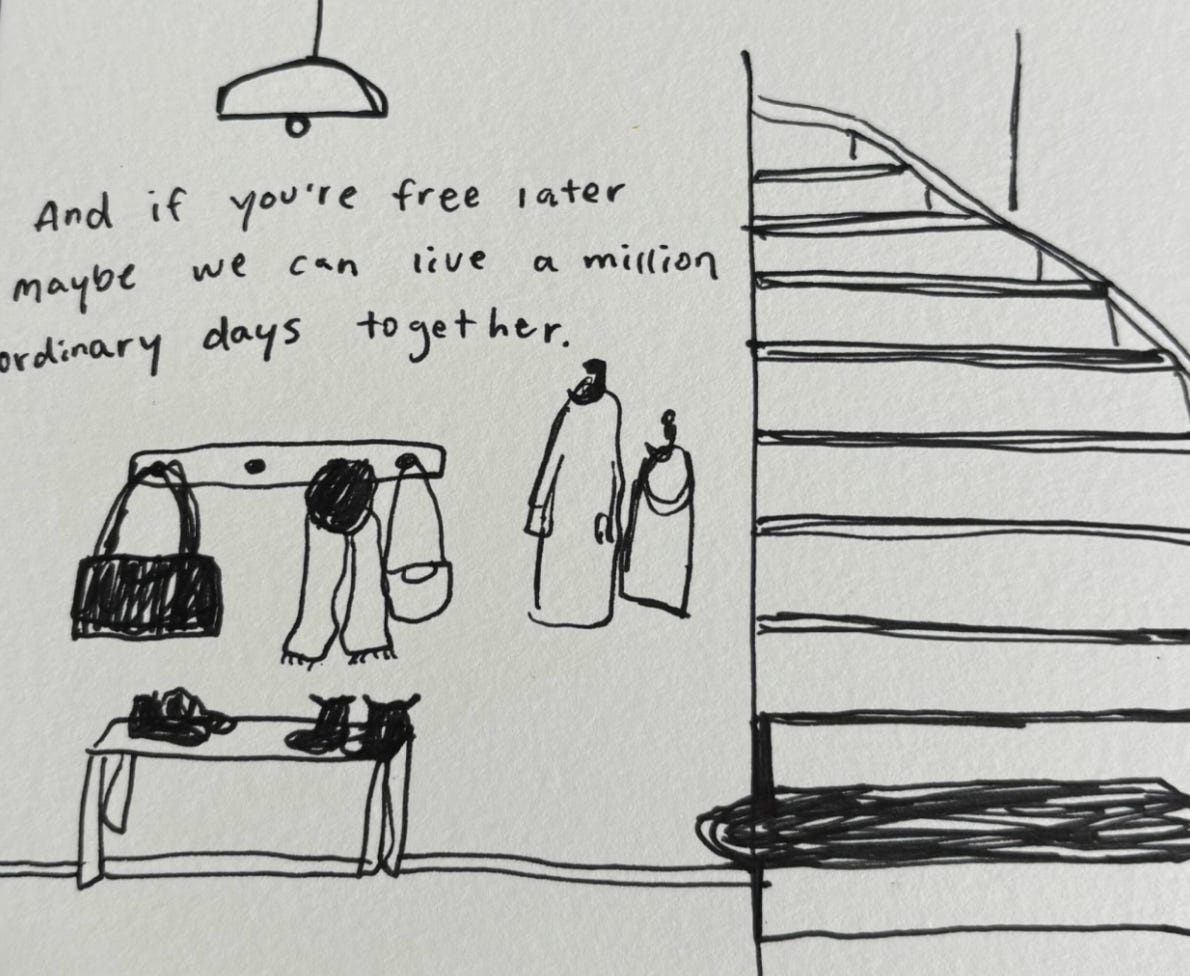 And if you're free later
maybe we can live a million
ordinary days together.